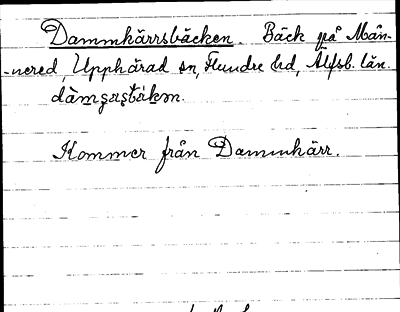 Dammkärrsbäcken. Bäck på Män-
-nered, Upphärad sn, Flundre hd, Älfsb. län.
Kommer från Dammkärr.